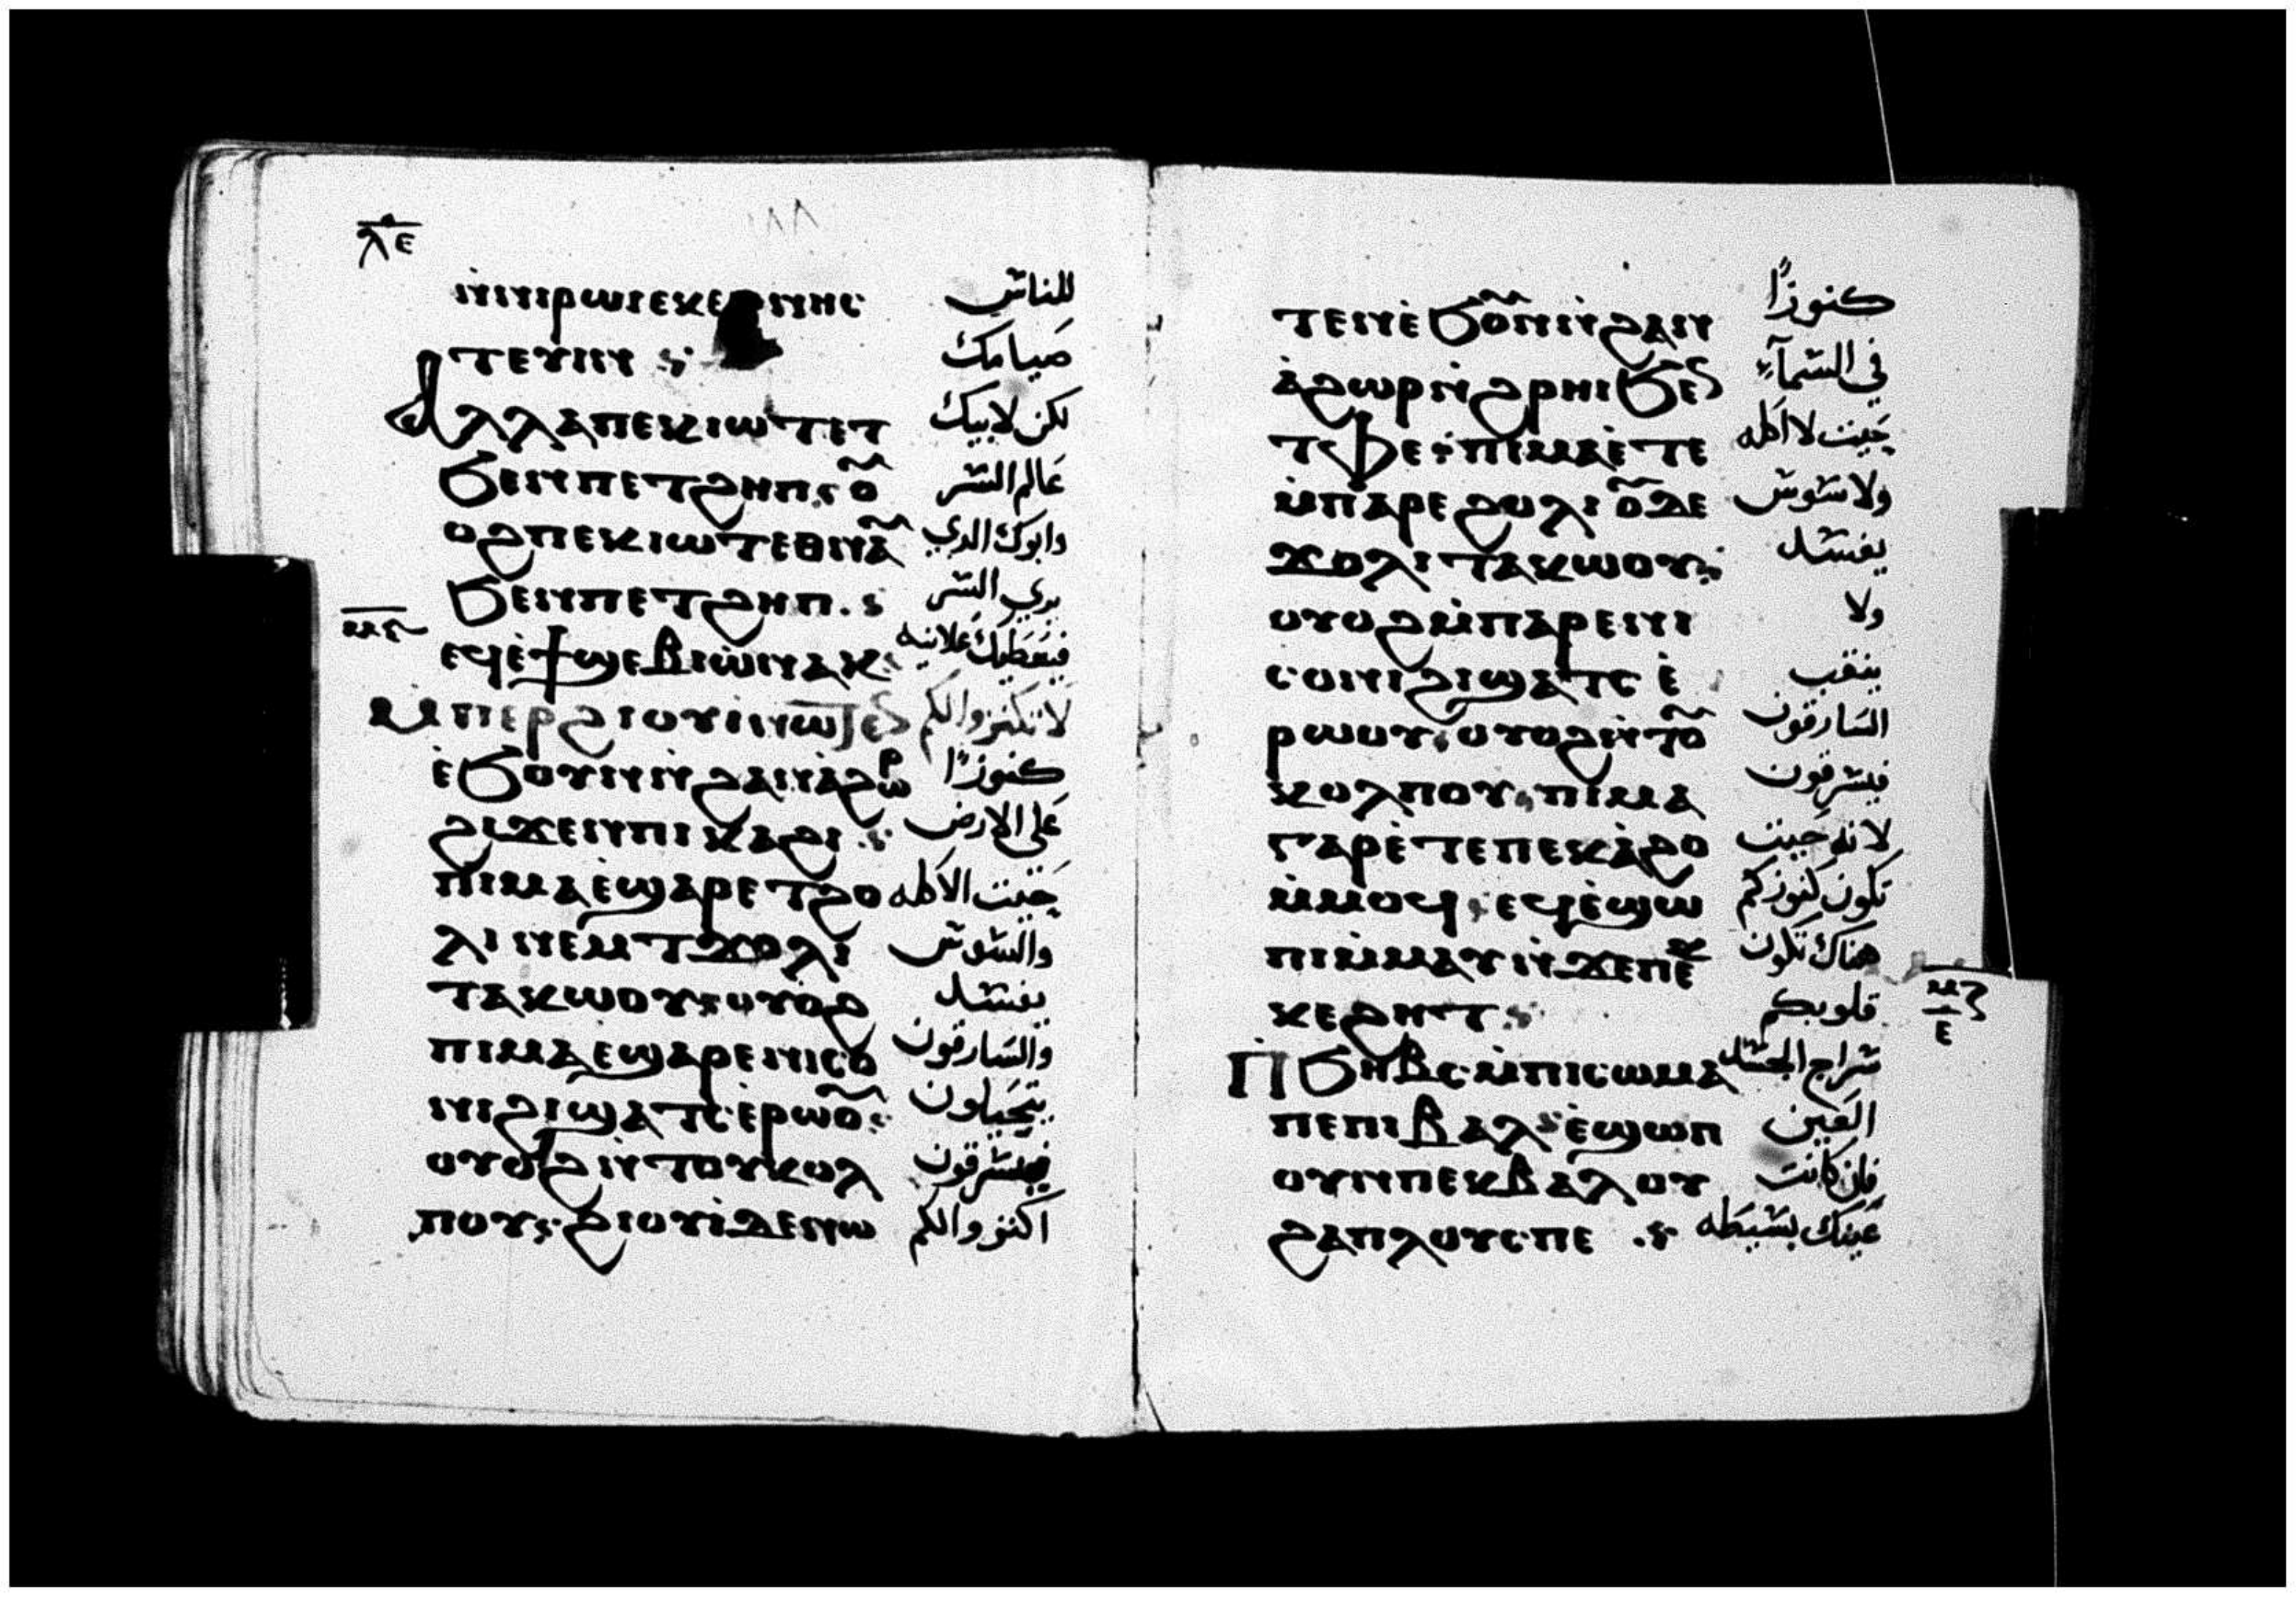 ⲗ̅ⲉ̅
ⲛ̀ⲛⲓⲣⲱⲙⲓ ⲉⲕⲉⲣⲛⲏⲥ للناس
ⲧⲉⲩⲓⲛ صيامك
ⲁⲗⲗⲁ ⲡⲉⲕⲓⲱⲧ ⲉⲧ لكن لابيك
ϧⲉⲛ ⲡⲉⲧϩⲏⲡ ⲟⲩ عالم السر
ⲟϩ ⲡⲉⲕⲓⲱⲧ ⲉⲑⲛⲁⲩ وابوك الدي
ϧⲉⲛ ⲡⲉⲧϩⲏⲡ يري السر
ⲉϥⲉ̀ϯϣⲉⲃⲓⲱ ⲛⲁⲕ فيعطيك علانيه
ⲙ̀ⲡⲉⲣϩⲓⲟⲩⲓ̀ ⲛⲱⲧⲉⲛ لا تكنزوا لكم
ⲉ̀ϧⲟⲩⲛ ⲛ̀ϩⲁⲛⲁ̀ϩⲱⲣ كنوزًا
ϩⲓϫⲉⲛ ⲡⲓⲕⲁϩⲓ علي الارض
ⲡⲓⲙⲁ ⲉ̀ϣⲁⲣⲉ ⲧϩⲟ حيت الاكله
ⲗⲓ ⲛⲉⲙ ⲧϫⲟⲗⲓ والسوس
ⲧⲁⲕⲱⲟⲩ ⲟⲩⲟϩ يفسد
ⲡⲓⲙⲁ ⲉϣⲁⲣⲉ ⲛⲓⲥⲟ والسارقون
ⲛⲓ ϩⲓϣⲁⲧⲥ ⲉ̀ⲣⲱⲟⲩ يتحيلون
ⲟⲩⲟϩ ⲛ̀ⲧⲟⲩⲕⲟⲗ فيسرقون
ⲡⲟⲩ ϩⲓⲟⲩⲓ̀ ⲇⲉ ⲛⲱ اكنزوا لكم
ⲧⲉⲛ ⲉ̀ϧⲟⲩⲛ ⲛ̀ϩⲁⲛ كنوزًا
ⲁ̀ϩⲱⲣ ⲛ̀ϩⲣⲏⲓ ϧⲉⲛ في السمآء
ⲧⲫⲉ ⲡⲓⲙⲁ ⲉ̀ⲧⲉ حيت لا اكله
ⲙ̀ⲡⲁⲣⲉ ϩⲟⲗⲓ ⲟⲩⲇⲉ ولا سوس
ϫⲟⲗⲓ ⲧⲁⲕⲱⲟⲩ يفسد
ⲟⲩⲟϩ ⲙ̀ⲡⲁⲣⲉ ⲛⲓ ولا
ⲥⲟⲛⲓ ϩⲓϣⲁⲧⲥ ⲉ̀ ينقب
ⲣⲱⲟⲩ ⲟⲩⲟϩ ⲛ̀ⲧⲟⲩ السارقون
ⲕⲟⲗⲡⲟⲩ ⲡⲓⲙⲁ فيسرقون
ⲅⲁⲣ ⲉ̀ⲧⲉ ⲡⲉⲕⲁ̀ϩⲟ لانه حيت
ⲙ̀ⲙⲟϥ ⲉϥⲉ̀ϣⲱ تكون كنوزكم
ⲡⲓ ⲙ̀ⲙⲁⲩ ⲛ̀ϫⲉ ⲡⲉ هناك تكون
ⲕⲉϩⲏⲧ قلوبكم
ⲙ̅ⲍ̅ ⲉ
ⲡ̀ϧⲏⲃⲥ ⲙ̀ⲡⲓⲥⲱⲙⲁ سراج الجسد
ⲡⲉ ⲡⲓⲃⲁⲗ ⲉ̀ϣⲱⲡ العين
ⲟⲩⲛ ⲡⲉⲕⲃⲁⲗ ⲟⲩ فان كانت
ϩⲁⲡⲗⲟⲩⲥ ⲡⲉ عينك بسيطه